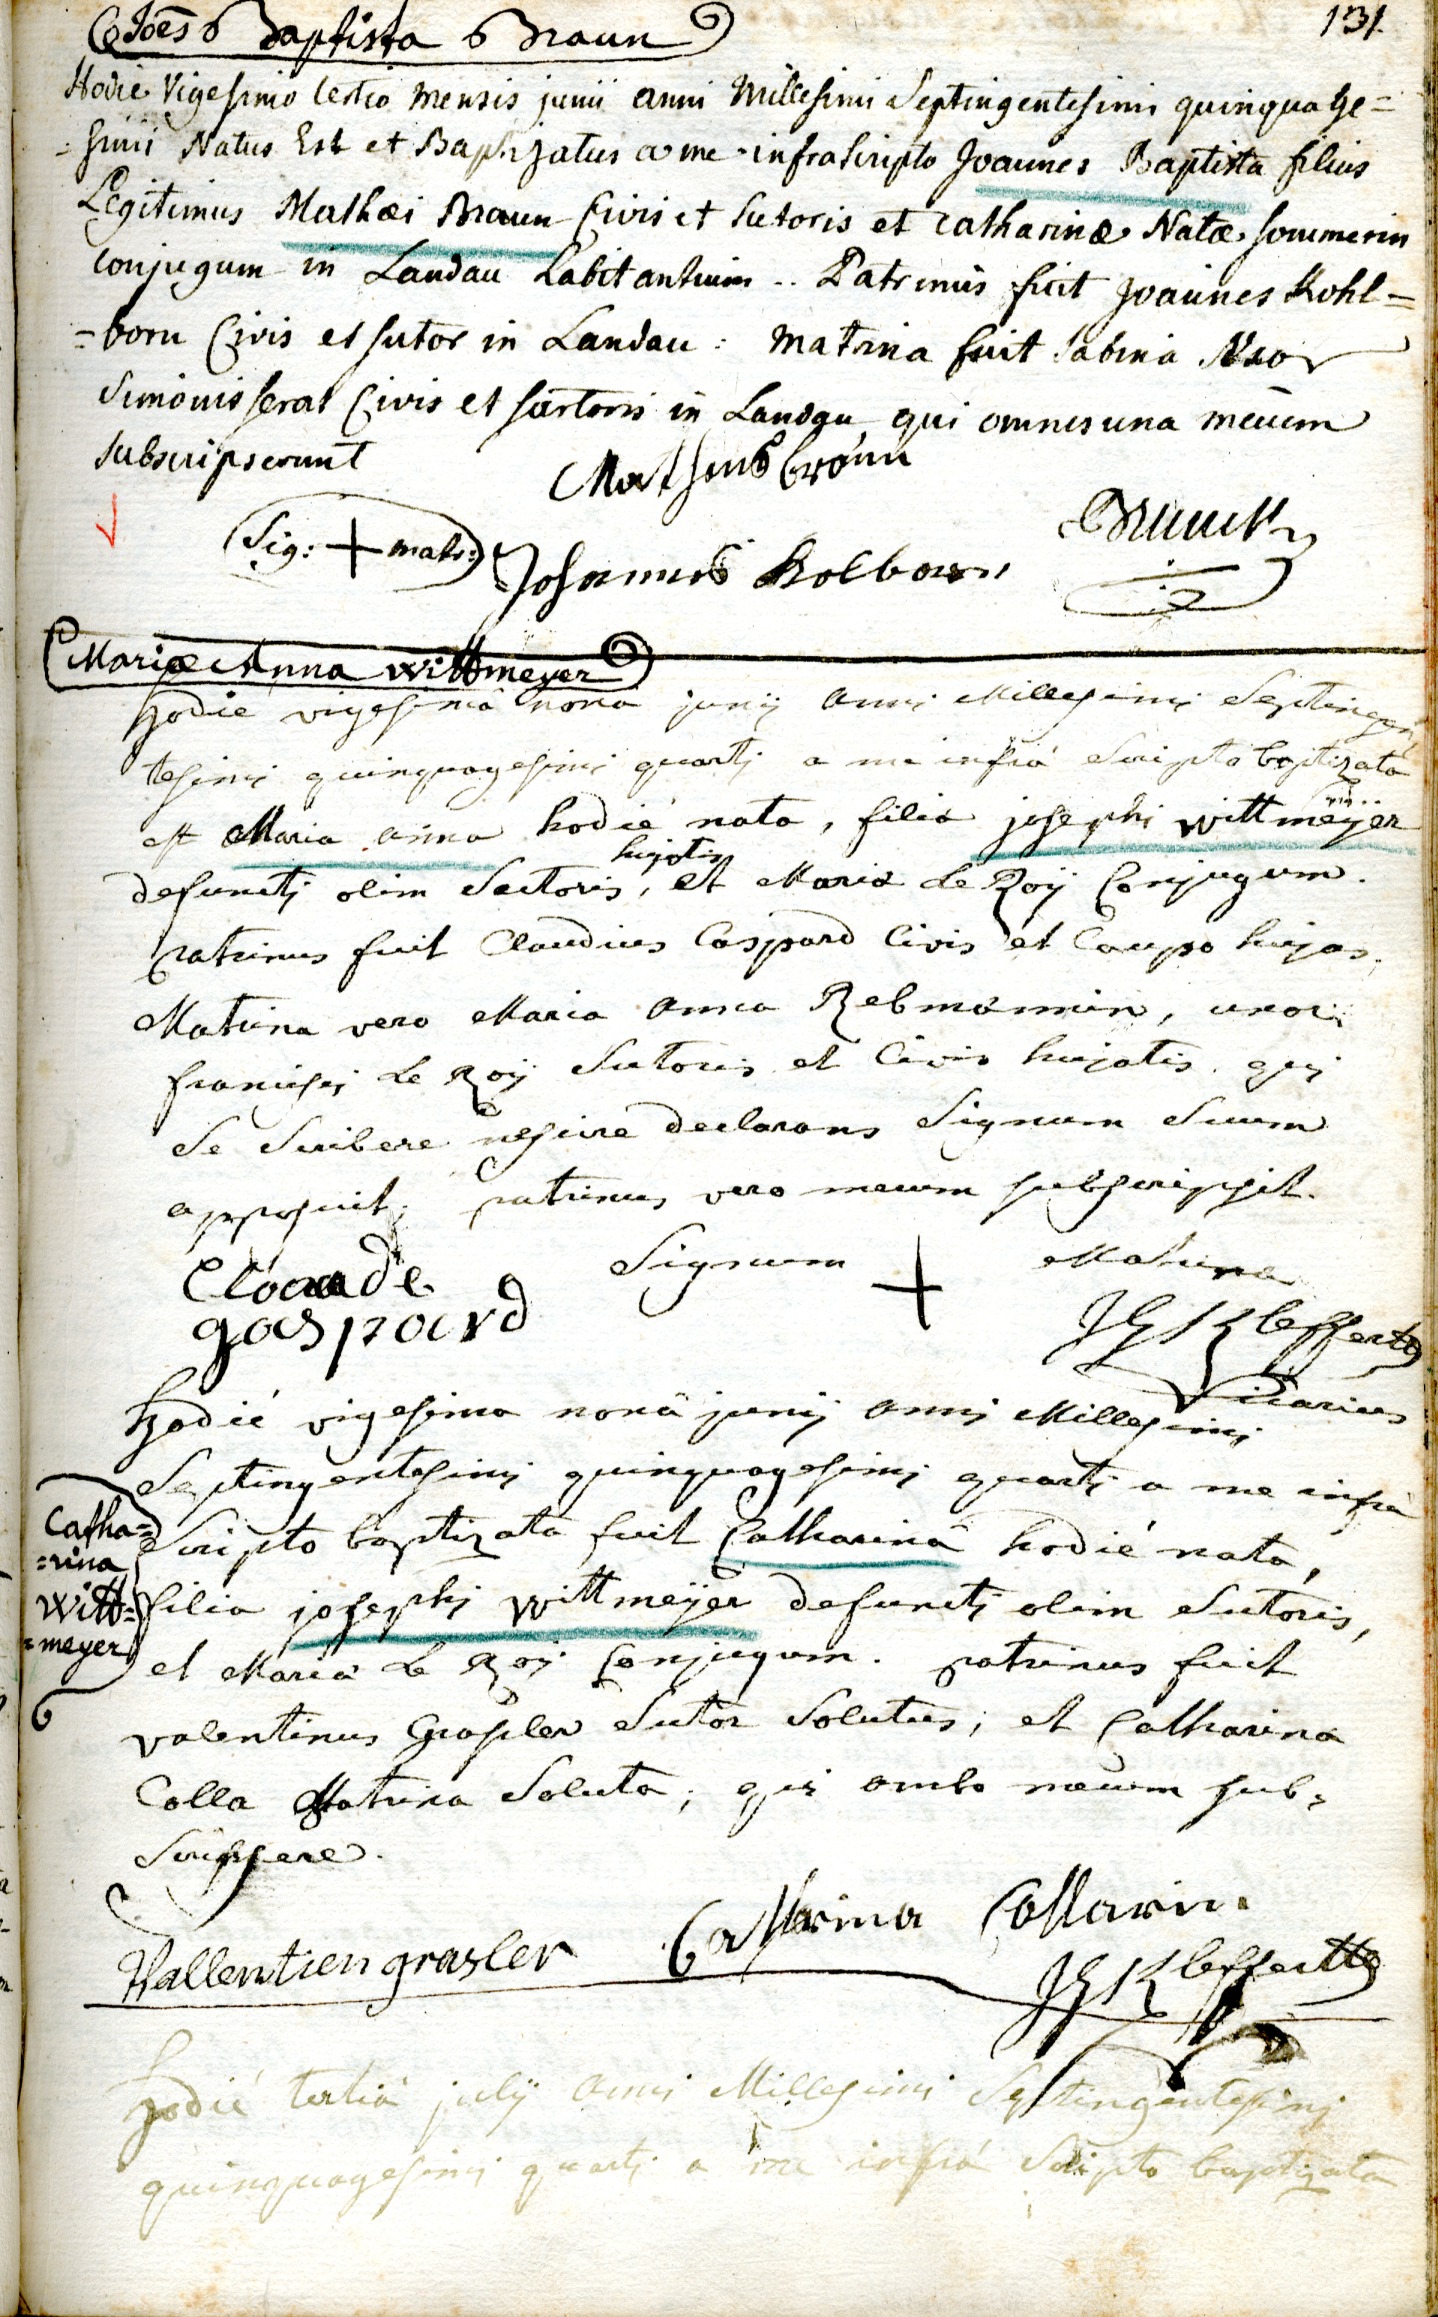 Joēs Baptista Braun
131.
Hodie Vigesimo tertio mensis junii anni Millesimi Septingentesimi quinquage=
=simi Natus Est et Baptizatus a me infrascripto Joannes Baptista filius
Legitimus Mathæi Braun Civis et Sutoris et Catharinæ Natæ sommerin
conjugum in Landau habitantium .. Patrinus fuit Joannes Kohl=
=born Civis et sutor in Landau : matrina fuit Sabina Uxor
Simonis serar Civis et sartoris in Landau qui omnes una mecum
subscripserunt
Matheus braun
Sig: + matr:
Johannes Kolborn
Mariæ Anna Wittmeyer
hodie vigesima nona junij anni Millesimi Septingen
tesimi quinquagesimi quarti a me infrà Scripto baptizata
est Maria anna hodié nata, filia josephi wittmeÿer
defuncti olim Sutoris, hujatis et Maria Le Roÿ Conjugum.
patrinus fuit Claudius Caspard Civis et Caupo hujas,
Matrina vero Maria Anna Rebmannin, uxor
francisci Le Roÿ Sutoris et Civis hujatis. qui
Se Scribere nescire declarans Signum Suum
apposuit, patrinus vero mecum subscripsit.
Clouade
gaspard
Signum + Matrina
JG Kleffertz
Vicarius
hodié vigesima nonâ junij anni Millesimi
Septingentesimi quinquagesimi quarti a me infrà
Catha=
=rina
Witt=
=meyer
Scripto baptizata fuit Catharinâ hodié nata,
filia josephi wittmeÿer defuncti olim Sutoris,
et Maria Le Roÿ Conjugum. patrinus fuit
valentinus Grasler Sutor Solutus; et Catharina
Colla Matrina Soluta; qui ambo mecum sub=
Scripsere.
Vallentien grasler
Catharina Collarin.
JG Kleffertz
hodié tertiâ julÿ anni Millesimi Septingentesimi
quinquagesimi quarti a me infrá Scripto baptizata